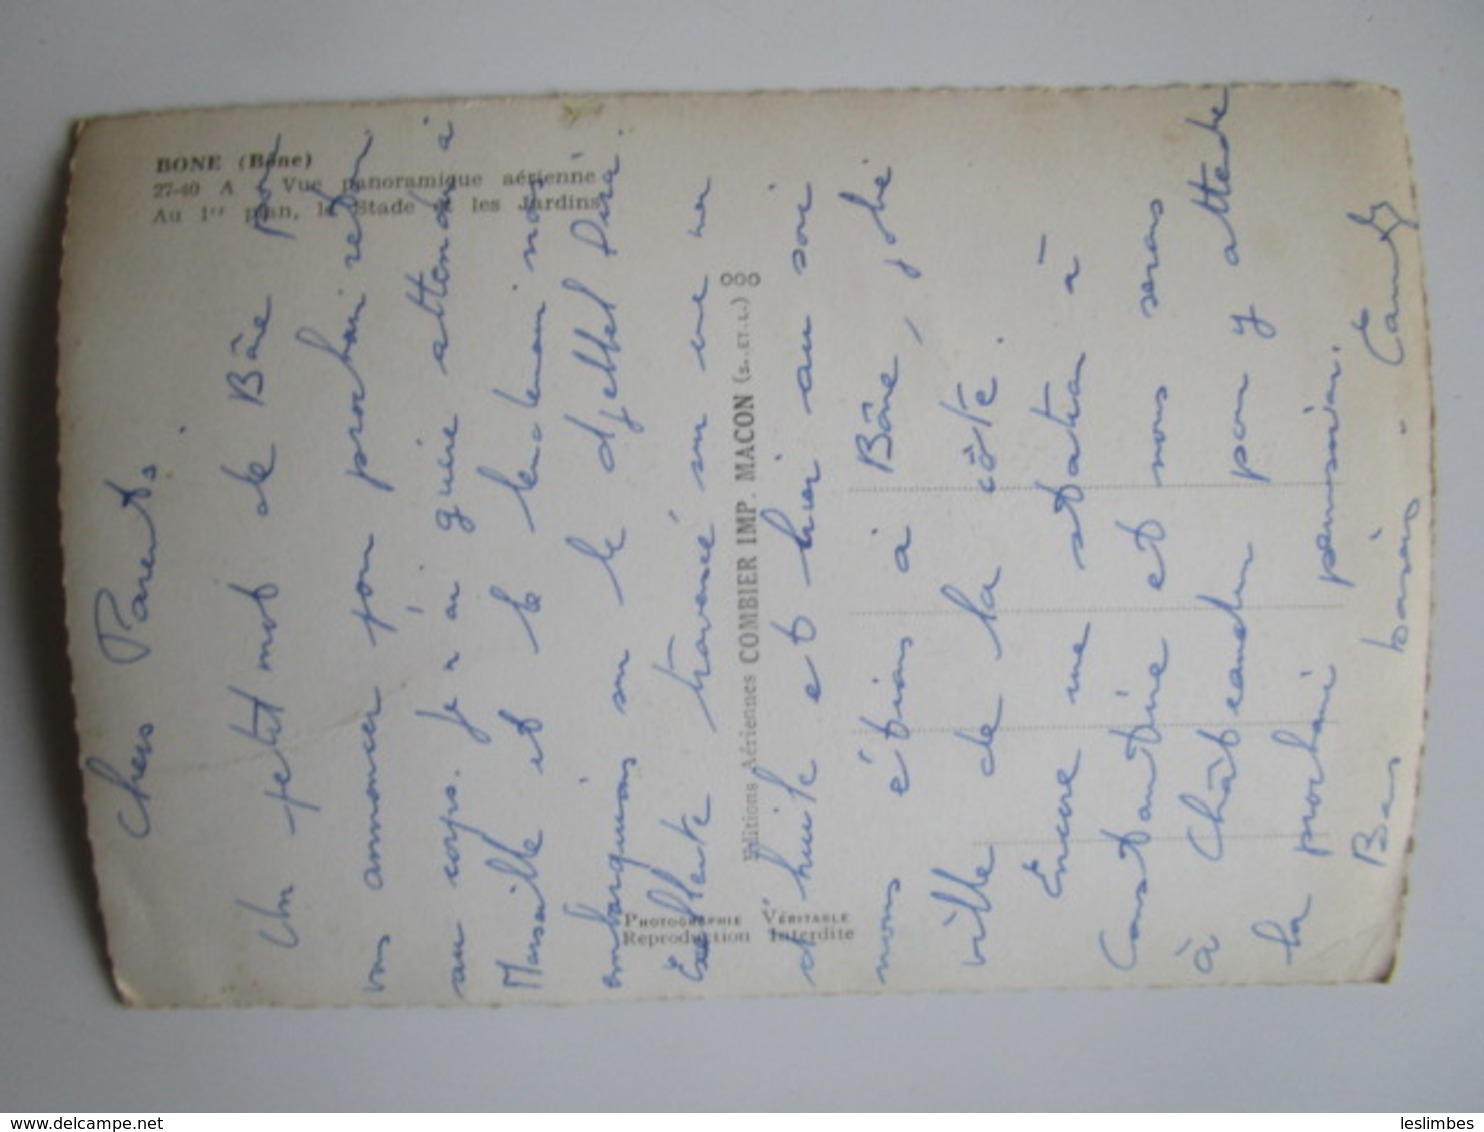 BONE (Bône)
27-40 A - Vue panoramique aérienne
Au 1er plan, le Stade et les Jardins
Editions Aériennes COMBIER IMP. MACON (S.-ET-L.)
PHOTOGRAPHIE VÉRITABLE
Reproduction Interdite
Chers Parents,
Un petit mot de Bône pour
vous annoncer mon prochain retour
au corps. Je n'ai guère attendu à
Marseille et le lendemain nous
embarquions sur le djebel Dira.
Exellente traversée sur une mer
d'huile et hier au soir
nous étions à Bône, jolie
ville de la côte.
Encore une station à
Constantine et nous serons
à Châteaudun pour y attendre
la prochaine permission.
Bons baisers -
delcampe.net
leslimbes